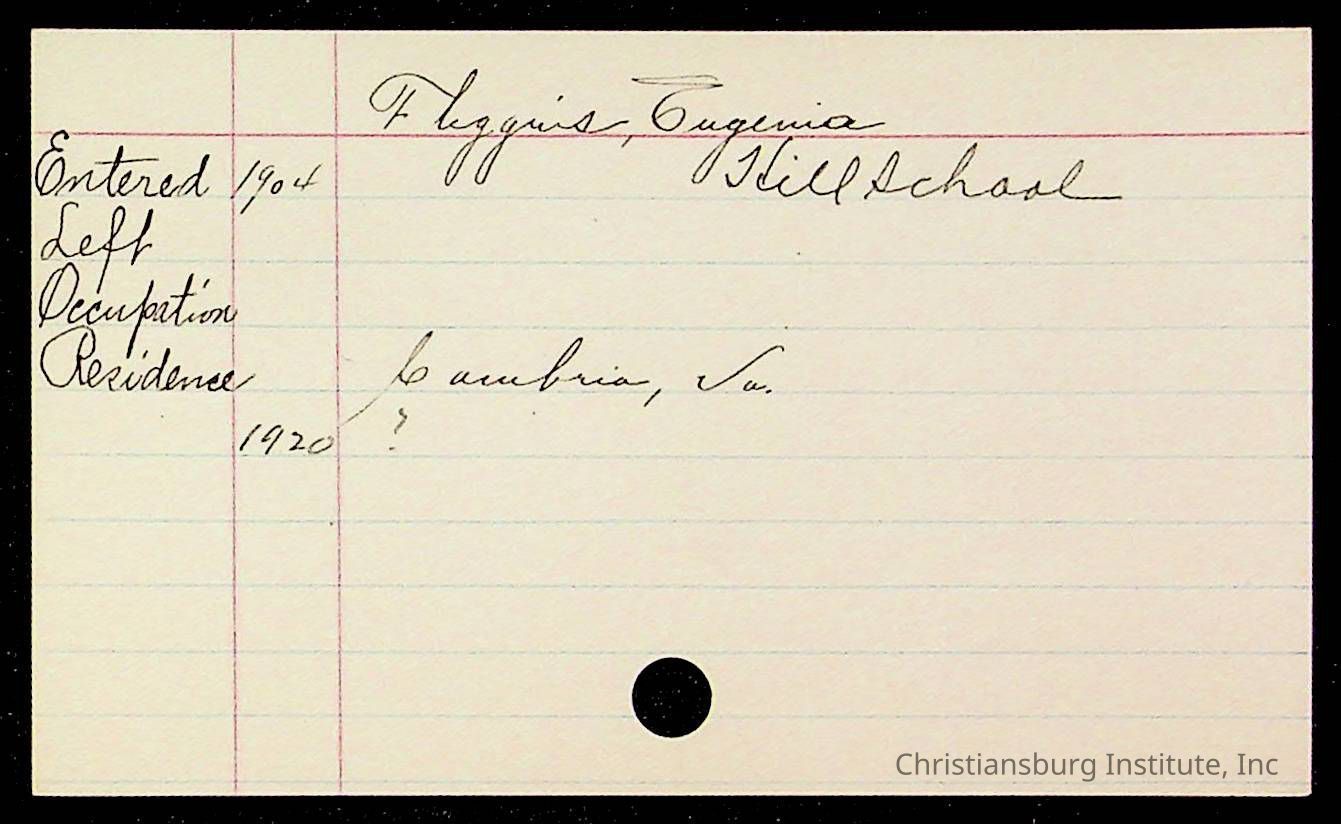 Fliggins, Eugenia
Entered 1904 Hill School
Left
Occupation
Residence Cambria, Va.
1920 ?
Christiansburg Institute, Inc